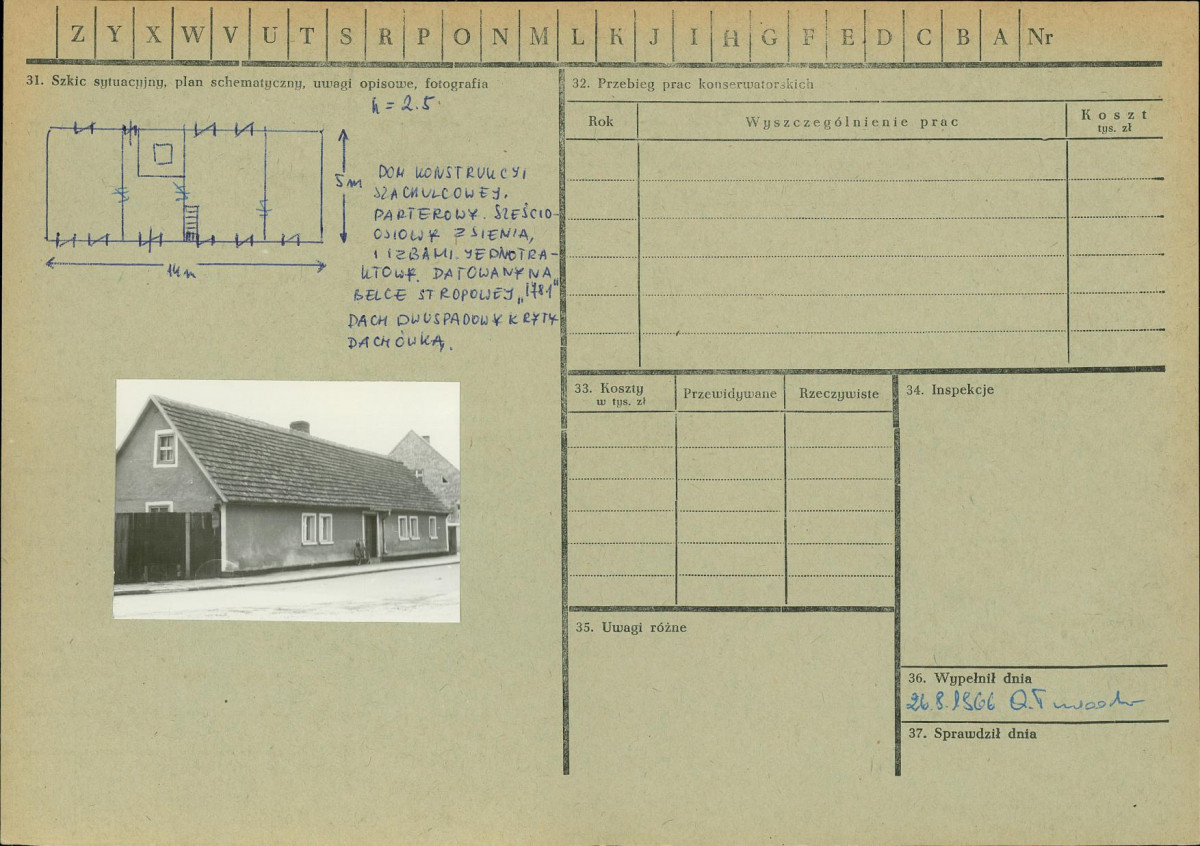 Z Y X W V U T S R P O N M L K J I H G F E D C B A Nr
31. Szkic sytuacyjny, plan schematyczny, uwagi opisowe, fotografia
h = 2.5.
5 m
14 m
DOM KONSTRUKCYI
SZACHULCOWEY.
PARTEROWY. SZEŚCIO-
OSIOWY Z SIENIĄ,
I IZBAMI. JEDNOTRA-
KTOWY. DATOWANY NA
BELCE STROPOWEY „1781"
DACH DWUSPADOWY KRYTY
DACHÓWKĄ.
32. Przebieg prac konserwatorskich
Rok
Wyszczególnienie prac
Koszt
tys. zł
33. Koszty
w tys. zł
Przewidywane
Rzeczywiste
34. Inspekcje
35. Uwagi różne
36. Wypełnił dnia
26.8.1966
37. Sprawdził dnia